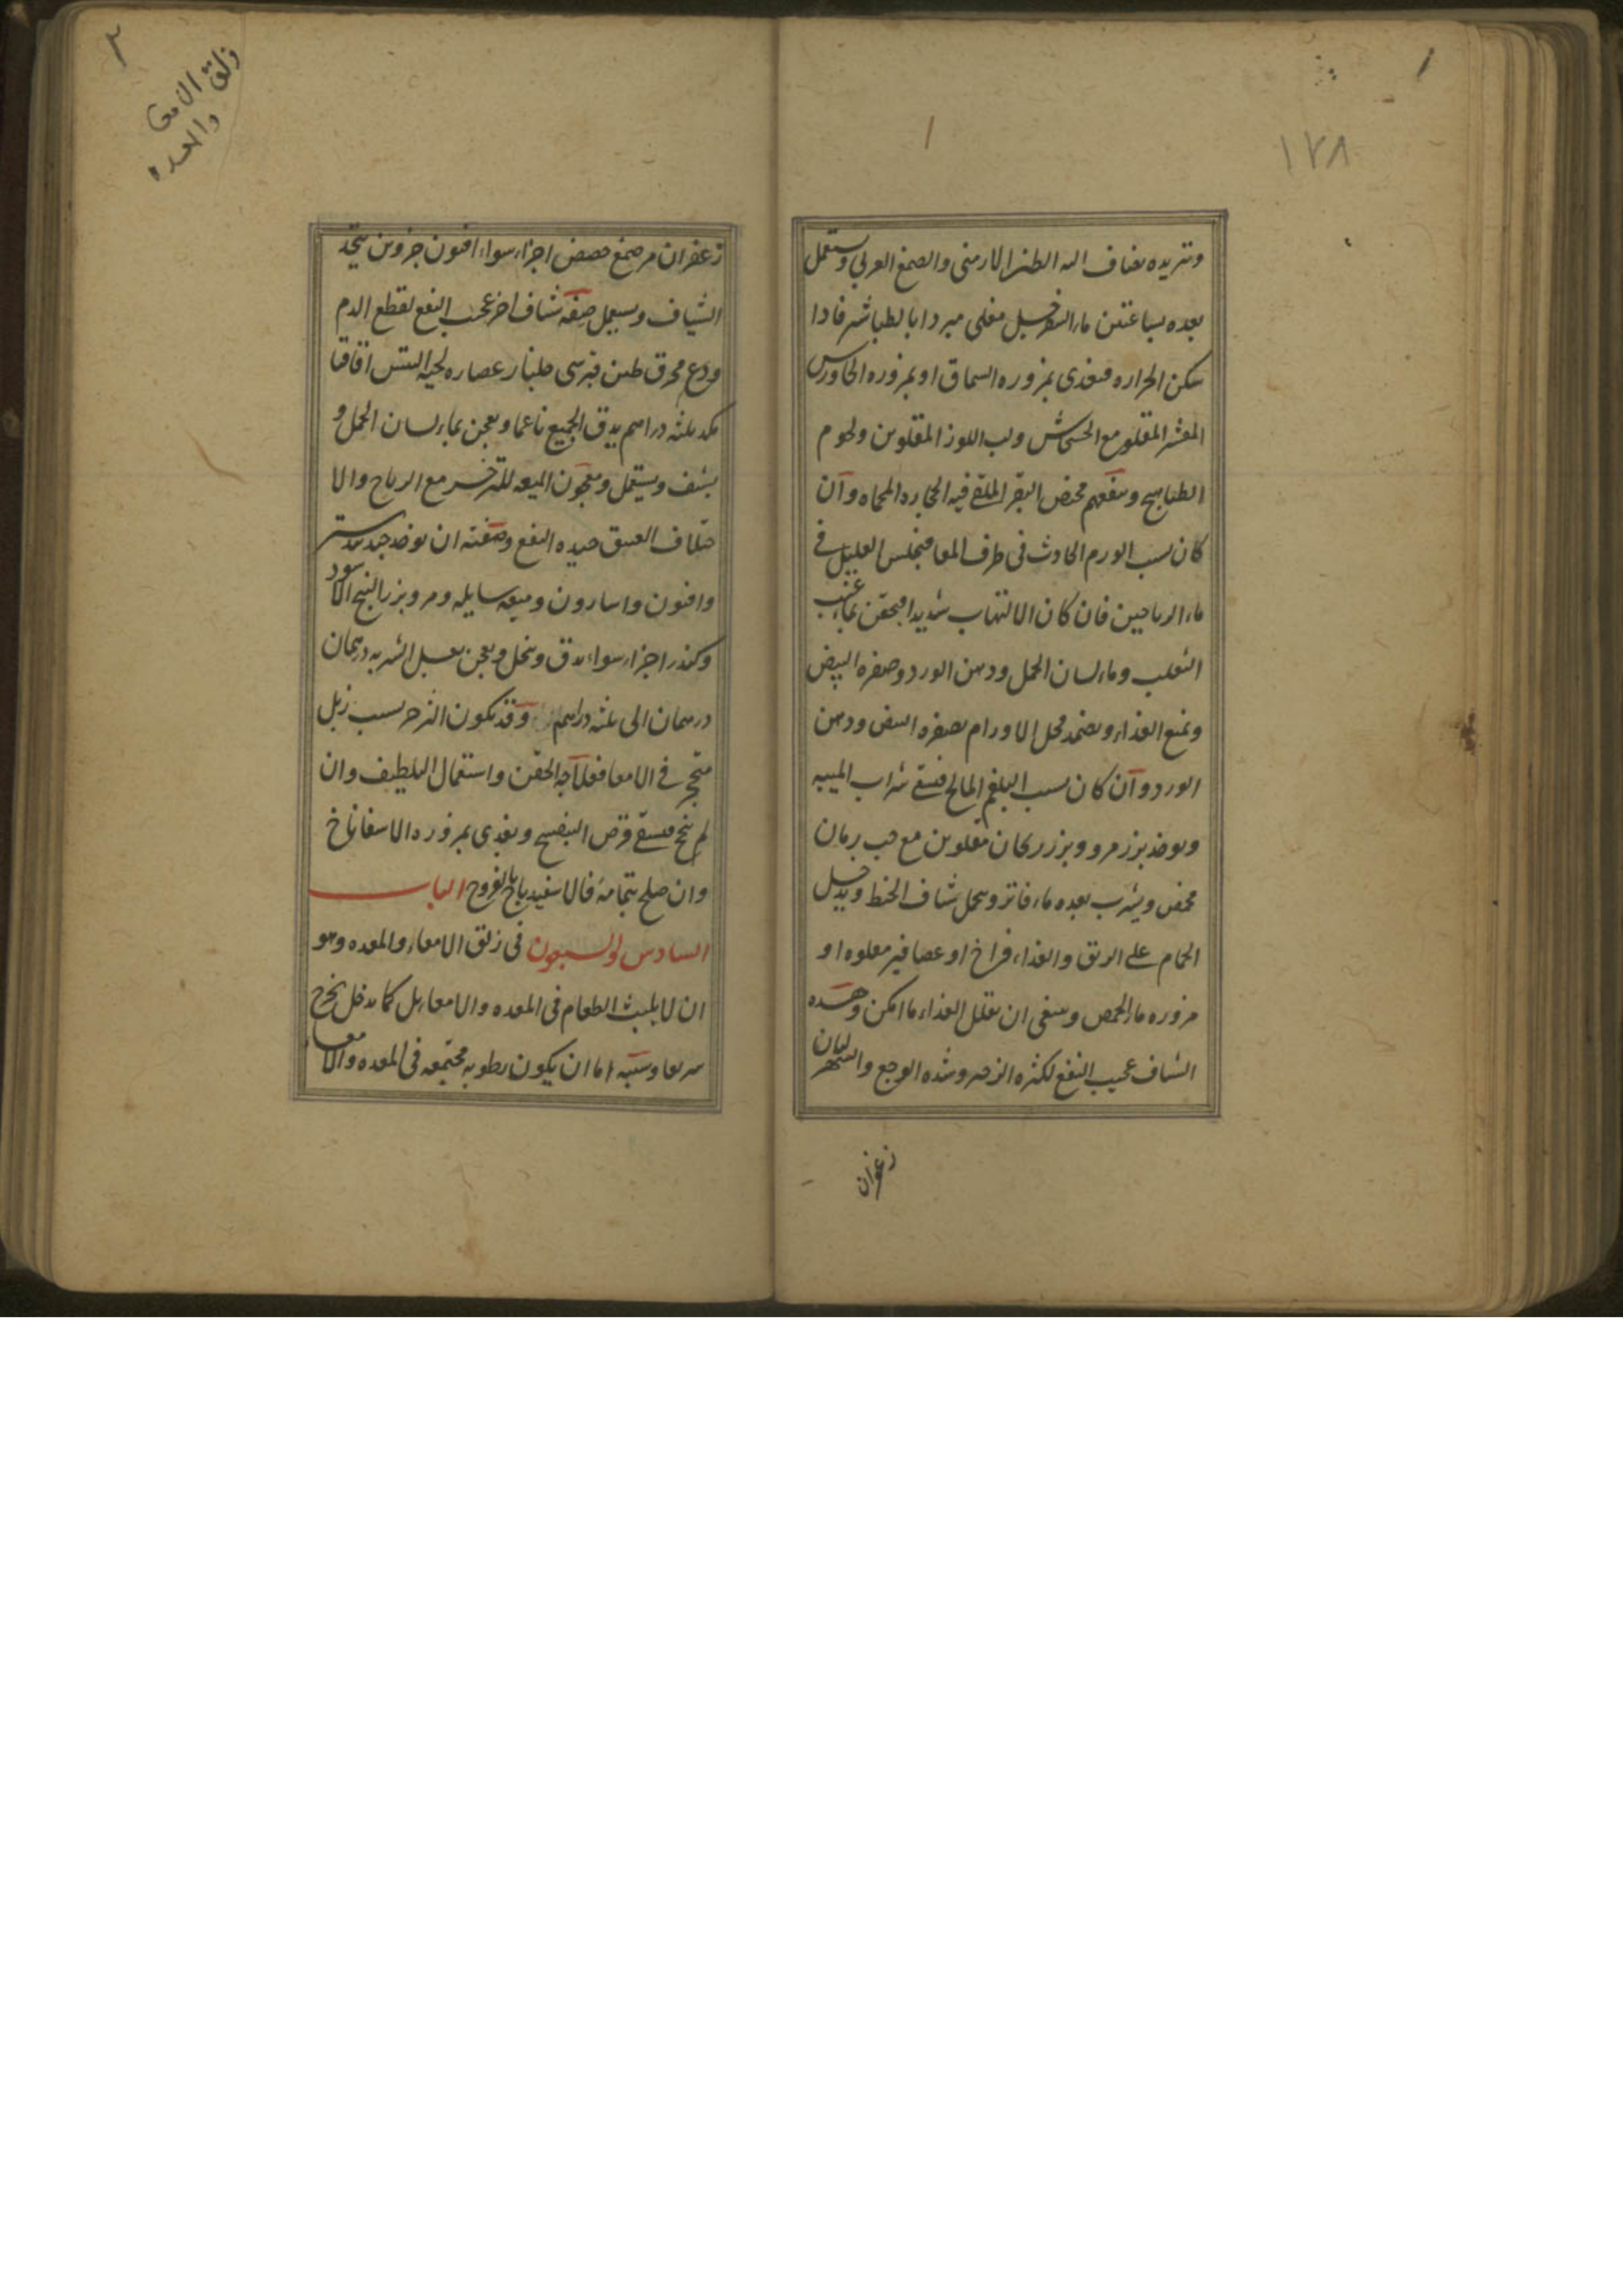 ١٧٨
وتبريده يضاف اليه الطين الارمنى والصمغ العربى ويستعمل
بعده بساعتين ماء السفرجل مغلى مبردا بالطباشير فاذا
سكن الحراره فيغذى بمزوره السماق او بمزوره الجاورس
المقشر المقلو مع الخشخاش ولب اللوز المقلوين ولحوم
الطياهيج وينفعهم مخيض البقر الملقى فيه الحجاره المحماه وان
كان بسبب الورم الحادث فى طرف المعا فيجلس العليل فى
ماء الرياحين فان كان الالتهاب شديدا فيحقن بماء عنب
الثعلب وماء لسان الحمل ودهن الورد وصفره البيض
ويمنع الغذاء ويضمد محل الاورام بصفره البيض ودهن
الورد وان كان بسبب البلغم المالح فيسقى شراب الميبه
ويوخذ بزر مرو وبزر ريحان مقلوين مع حب رمان
محمص ويشرب بعده ماء فاتر ويحمل شياف الخطى ويدخل
الحمام على الريق والغذاء فراخ او عصافير مقلوه او
مزوره ماء الحمص وينبغى ان يقلل الغذاء ما امكن وهذه
الشياف عجيب النفع لكثره الزحير وشده الوجع والسهر لبان
زعفران
٢
زلق الامعا
والمعده
زعفران مر صمغ حضض اجزاء سواء افيون جزوين يتخذ
الشياف ويستعمل صفه شياف اخر عجيب النفع لقطع الدم
ودع محرق طين قبرسى جلنار عصاره لحيه التيس اقاقيا
من كل ثلثه دراهم يدق الجميع ناعما ويعجن بماء لسان الحمل و
يشيف ويستعمل ومعجون الميعه للزحير مع الرياح والا
ختلاف العتيق جيده النفع وصفته ان يوخذ جندبيدستر
وافيون واسارون وميعه سايله ومر وبزر البنج الاسود
وكندر اجزاء سواء يدق وينخل ويعجن بعسل الشربه درهمان
درهمان الى ثلثه دراهم وقد يكون الزحير بسبب زبل
متحجر فى الامعا فعلاجه الحقن واستعمال التلطيف وان
لم ينجح فيسقى قرص البنفسج ويغذى بمزوره الاسفاناخ
وان صلح بتمامه فالاسفيدباج بالفروج الباب
السادس والسبعون فى زلق الامعاء والمعده وهو
ان لا يلبث الطعام فى المعده والامعاء بل كما يدخل يخرج
سريعا وسببه اما ان يكون رطوبه مجتمعه فى المعده والامعاء